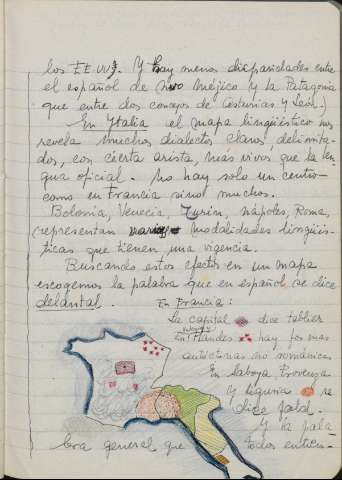 los EE UU). Y hay menos disparidades entre
el español de Méjico y la Patagonia
que entre dos concejos de Asturias y León.)
En Italia el mapa lingüístico nos
revela muchos dialectos claros, delimita-
dos, con cierta arista, más vivos que la len
gua oficial. No hay solo un centro
como en Francia sino muchos.
Bolonia, Venecia, Turín, Nápoles, Roma,
representan modalidades lingüís-
ticas que tienen una vigencia.
Buscando estos efectos en un mapa
escogemos la palabra que en español se dice
delantal. En Francia:
La capital dice tablier
En Flandes hay formas
autóctonas no románicas
En Saboya, Provenza
Y Liguria se
dice
Y la pala
bra general que todos entien-